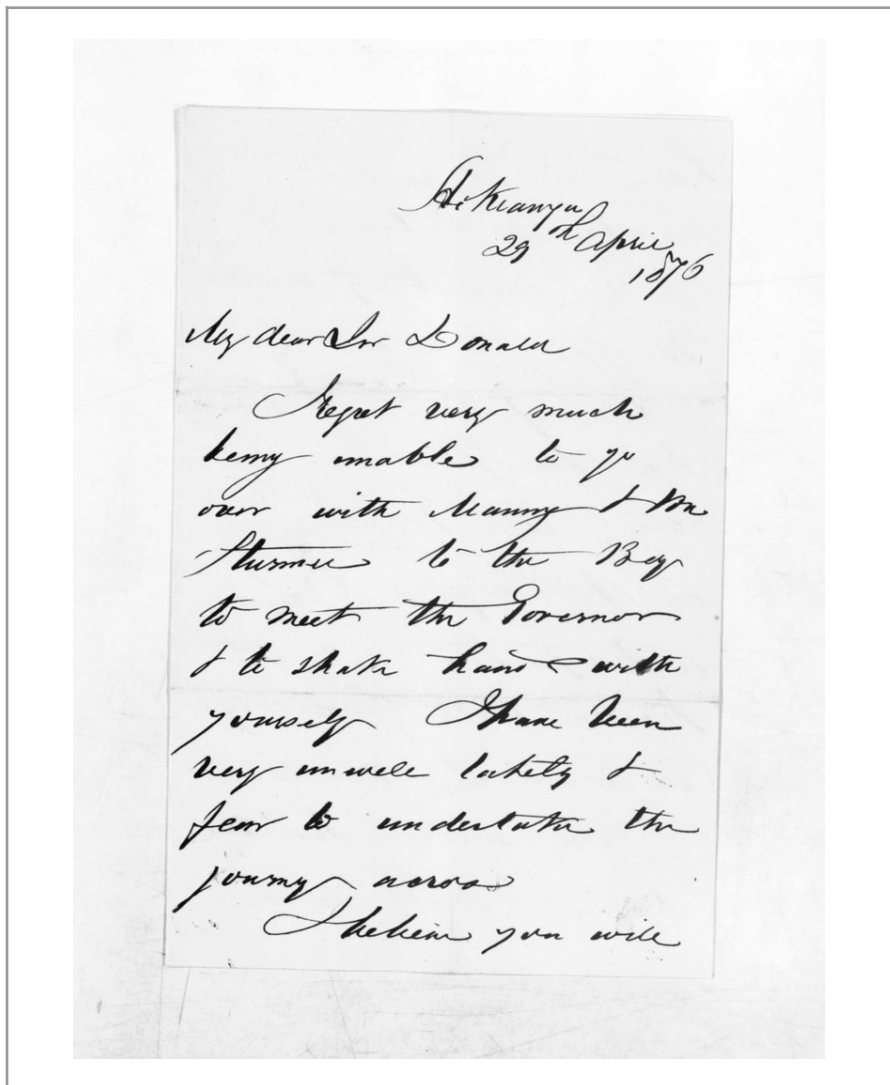 Hokianga
29th April
1876
My dear Sir Donald
I regret very much
being unable to go
over with Manning & Mr
Sturmer to the Bay
to meet the Governor
& to shake hands with
yourself I have been
very unwell lately &
fear to undertake the
journey across
I believe you will